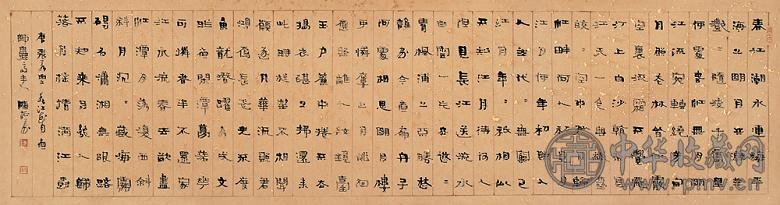 春江潮水連海平
海上明月共潮生
灩灩隨波千萬里
何處春江無月明
江流宛轉繞芳甸
月照花林皆似霰
空裏流霜不覺飛
汀上白沙看不見
江天一色無纖塵
皎皎空中孤月輪
江畔何人初見月
江月何年初照人
人生代代無窮已
江月年年祇相似
不知江月待何人
但見長江送流水
白雲一片去悠悠
青楓浦上不勝愁
誰家今夜扁舟子
何處相思明月樓
可憐樓上月裴回
應照離人妝鏡臺
玉戶簾中卷不去
擣衣砧上拂還來
此時相望不相聞
願逐月華流照君
鴻雁長飛光不度
魚龍潛躍水成文
昨夜閒潭夢落花
可憐春半不還家
江水流春去欲盡
江潭落月復西斜
斜月沉沉藏海霧
碣石瀟湘無限路
不知乘月幾人歸
落月搖情滿江樹
唐張若虛春江花月夜
中华收藏网
www.pmv.cn